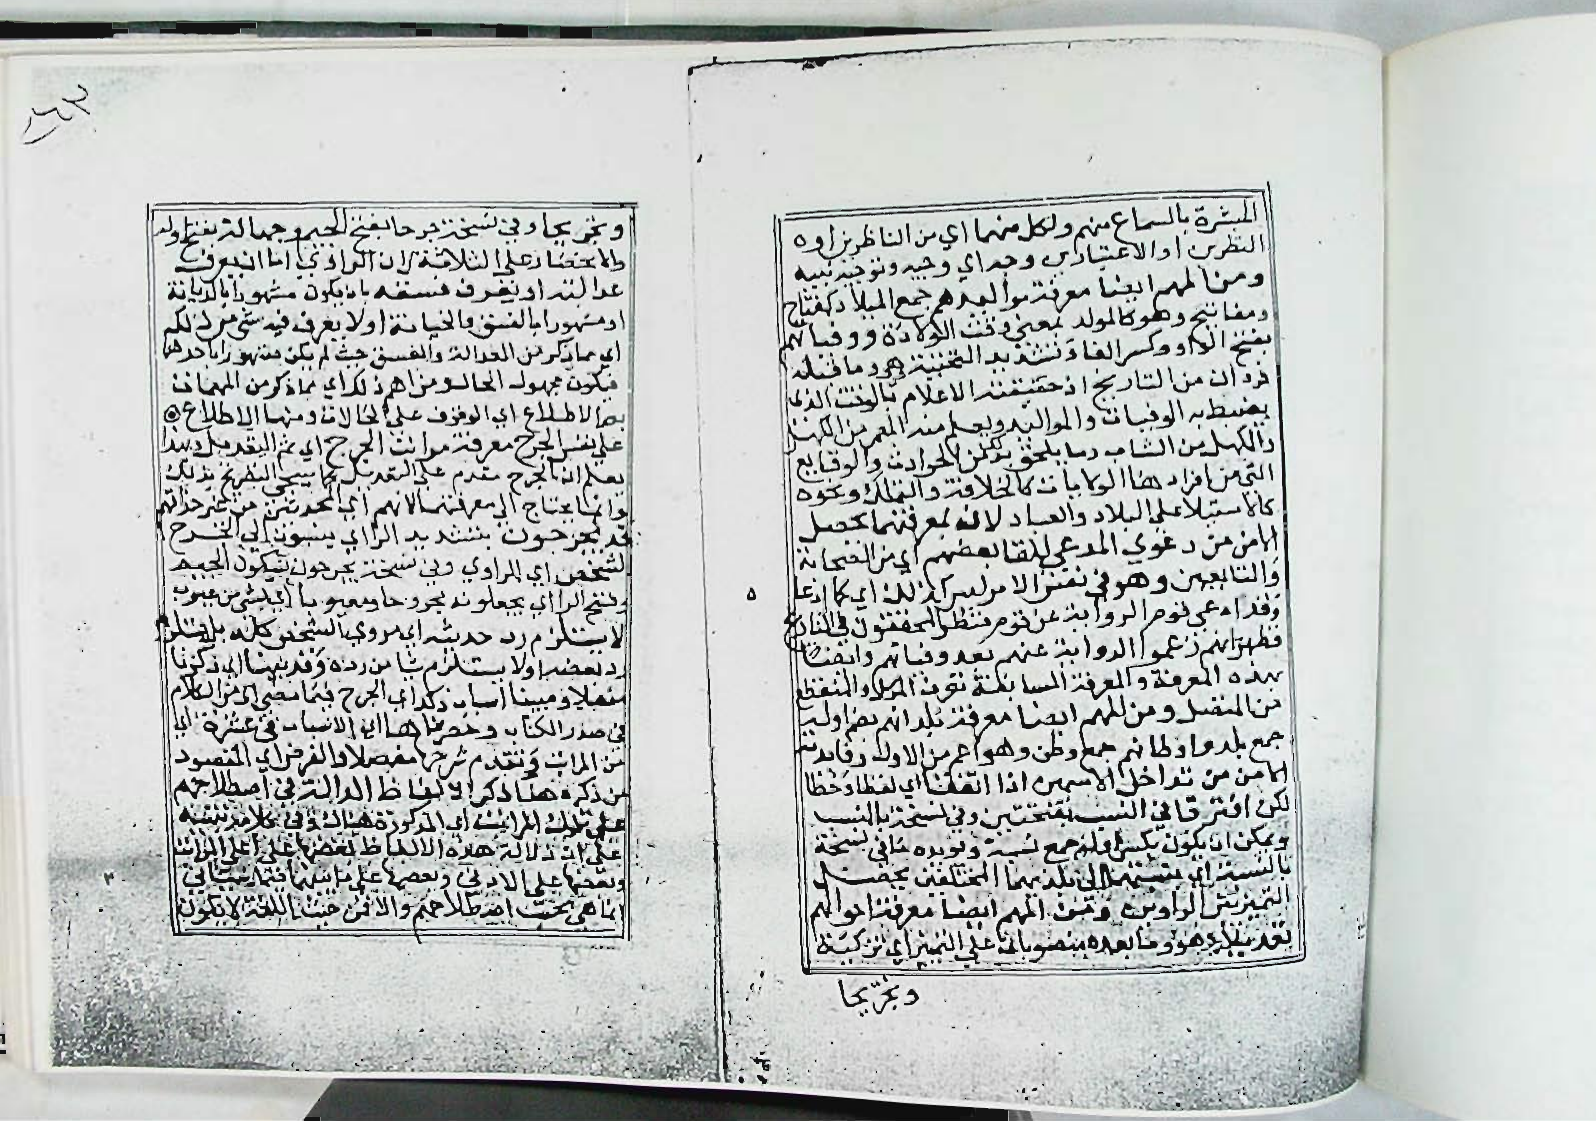 المبشرة بالسماع منهم ولكل منهما اي من الناظرين او
النظرين او الاعتبارين وجه اي وجيه وتوجيه نبيه
ومن المهم ايضا معرفة مواليدهم جمع الميلاد كمفتاح
ومفاتيح وهو كالمولد بمعنى وقت الولادة ووفياتهم
بفتح الواو وكسر الفاء وتشديد التحتية هو وما قبله
فردان من التاريخ اذ حقيقته الاعلام بالوقت الذي
يضبط به الوفيات والمواليد ويعلم منه المعمر من الكهل
والكهل من الشاب وما يلحق بذكر الحوادث والوقايع
التي من افرادها الولايات كالخلافة والتملك ونحوه
كالاستيلا على البلاد والعباد لانه بمعرفتهما يحصل
الامن من دعوى المدعي للقا بعضهم اي من الصحابة
والتابعين وهو في نفس الامر ليس كذلك اي كما ادعا
وقد ادعى قوم الرواية عن قوم فنظر المحققون في التاريخ
فظهر انهم زعموا الرواية عنهم بعد وفياتهم وايضا
بهذه المعرفة والمعرفة السابقة تعرف المرسل والمنقطع
من المتصل ومن المهم ايضا معرفة بلدانهم بضم اوله
جمع بلد واوطانهم جمع وطن وهو اعم من الاول وفايدته
الامن من تداخل الاسمين اذا اتفقتا اي لفظا وخطا
لكن افترقا في النسب بفتحتين وفي نسخة بالنسب
ويمكن ان يكون بكسر اوله جمع نسبة ويؤيده ما في نسخة
بالنسبة اي بنسبتهما الى بلديهما المختلفتين يحصل
التميز بين الراويين ومن المهم ايضا معرفة احوالهم
تعديلا وهو وما بعده منصوبات على التميز اي تزكية
وتجريحا
وتجريحا وفي نسخة جرحا بفتح الجيم وجهالة بفتح اوله
والانحصار على الثلاثة لان الراوي اما ان يعرف
عدالته او يعرف فسقه بان يكون مشهورا بالديانة
او مشهورا بالفسق والخيانة او لا يعرف فيه شي من ذلك
اي مما ذكر من العدالة والفسق حيث لم يكن مشهورا باحدهما
فيكون مجهول الحال ومن اهم ذلك اي مما ذكر من المهمات
بعد الاطلاع اي الوقوف على الحالات ومنها الاطلاع
على نفس الجرح معرفة مراتب الجرح اي ثم التعديل وبهذا
يعلم ان الجرح مقدم على التعديل كما سيجي التصريح بذلك
وانما يحتاج الى معرفتهما لانهم اي المحدثين من غير حد انهم
قد يجرحون بتشديد الراي ينسبون الى الجرح
الشخص اي الراوي وفي نسخة يجرحون بسكون الجيم
وفتح الراي يجعلونه مجروحا ومعيوبا اي بشي من عيوب
لا يستلزم رد حديثه اي مروي الشخص كله بل يستلزم
رد بعضه او لا يستلزم شيا من رده وقد بينا اي ذكرنا
مفصلا ومبينا اسباب ذلك اي الجرح فيما مضى اي من الكلام
في صدر الكتاب وحصرناها اي الاسباب في عشرة اي
من المراتب وتقدم شرحها مفصلا والغرض اي المقصود
من ذكره هنا ذكر الالفاظ الدالة في اصطلاحهم
على تلك المراتب اي المذكورة هناك وفي كلامه تنبيه
على ان دلالة هذه الالفاظ بعضها على اعلى المراتب
وبعضها على الادنى وبعضها على ما بينهما
انما هي بحسب اصطلاحهم والا فمن حيث اللغة لا يكون